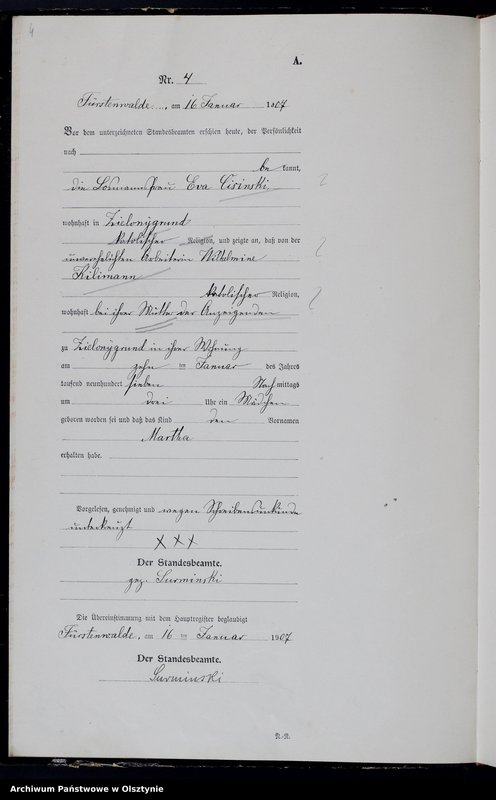 4
A.
Nr. 4
Fürstenwalde, am 16 Januar 1907
Vor dem unterzeichneten Standesbeamten erschien heute, der Persönlichkeit
nach
be kannt,
die Losmannsfrau Eva Cisinski,
wohnhaft in Zielonygrund
katolischer Religion, und zeigte an, daß von der
unverehelichten Arbeiterin Wilhelmine
Kilimann
katolischer Religion,
wohnhaft bei ihrer Mutter der Anzeigenden
zu Zielonygrund in ihrer Wohnung
am zehn ten Januar des Jahres
tausend neunhundert sieben Nach mittags
um drei Uhr ein Mädchen
geboren worden sei und daß das Kind den Vornamen
Martha
erhalten habe.
Vorgelesen, genehmigt und wegen Schreibensunkunde
unterkreuzt
XXX
Der Standesbeamte.
gez. Surminski
Die Übereinstimmung mit dem Hauptregister beglaubigt
Fürstenwalde, am 16 ten Januar 1907
Der Standesbeamte.
Surminski
Archiwum Państwowe w Olsztynie